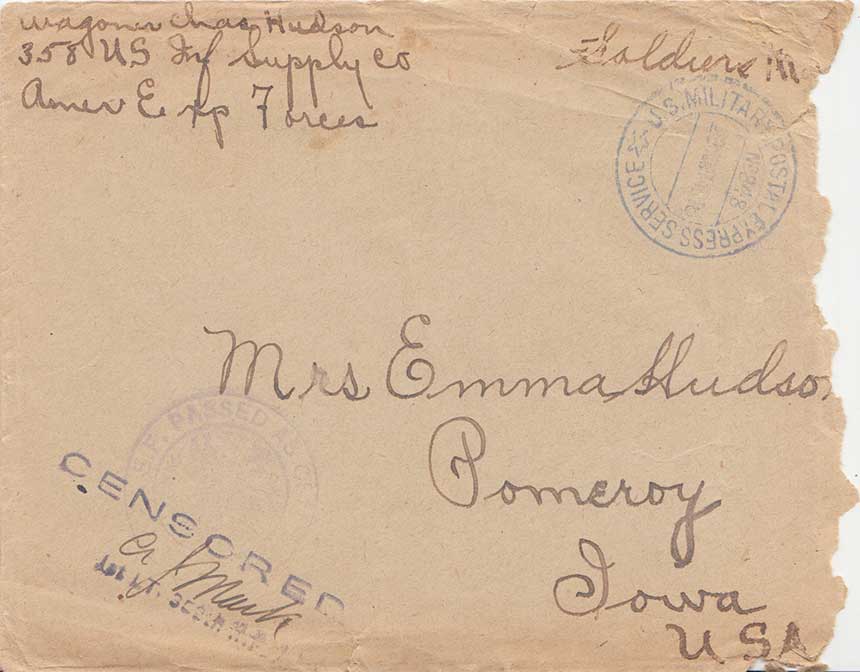 Wagoner Chas Hudson
358 US Inf Supply Co
Amer Exp Forces
Soldiers M
U.S. MILITARY POSTAL EXPRESS SERVICE
Mrs Emma Hudso
Pomeroy
Iowa
USA
PASSED AS CE
CENSORED